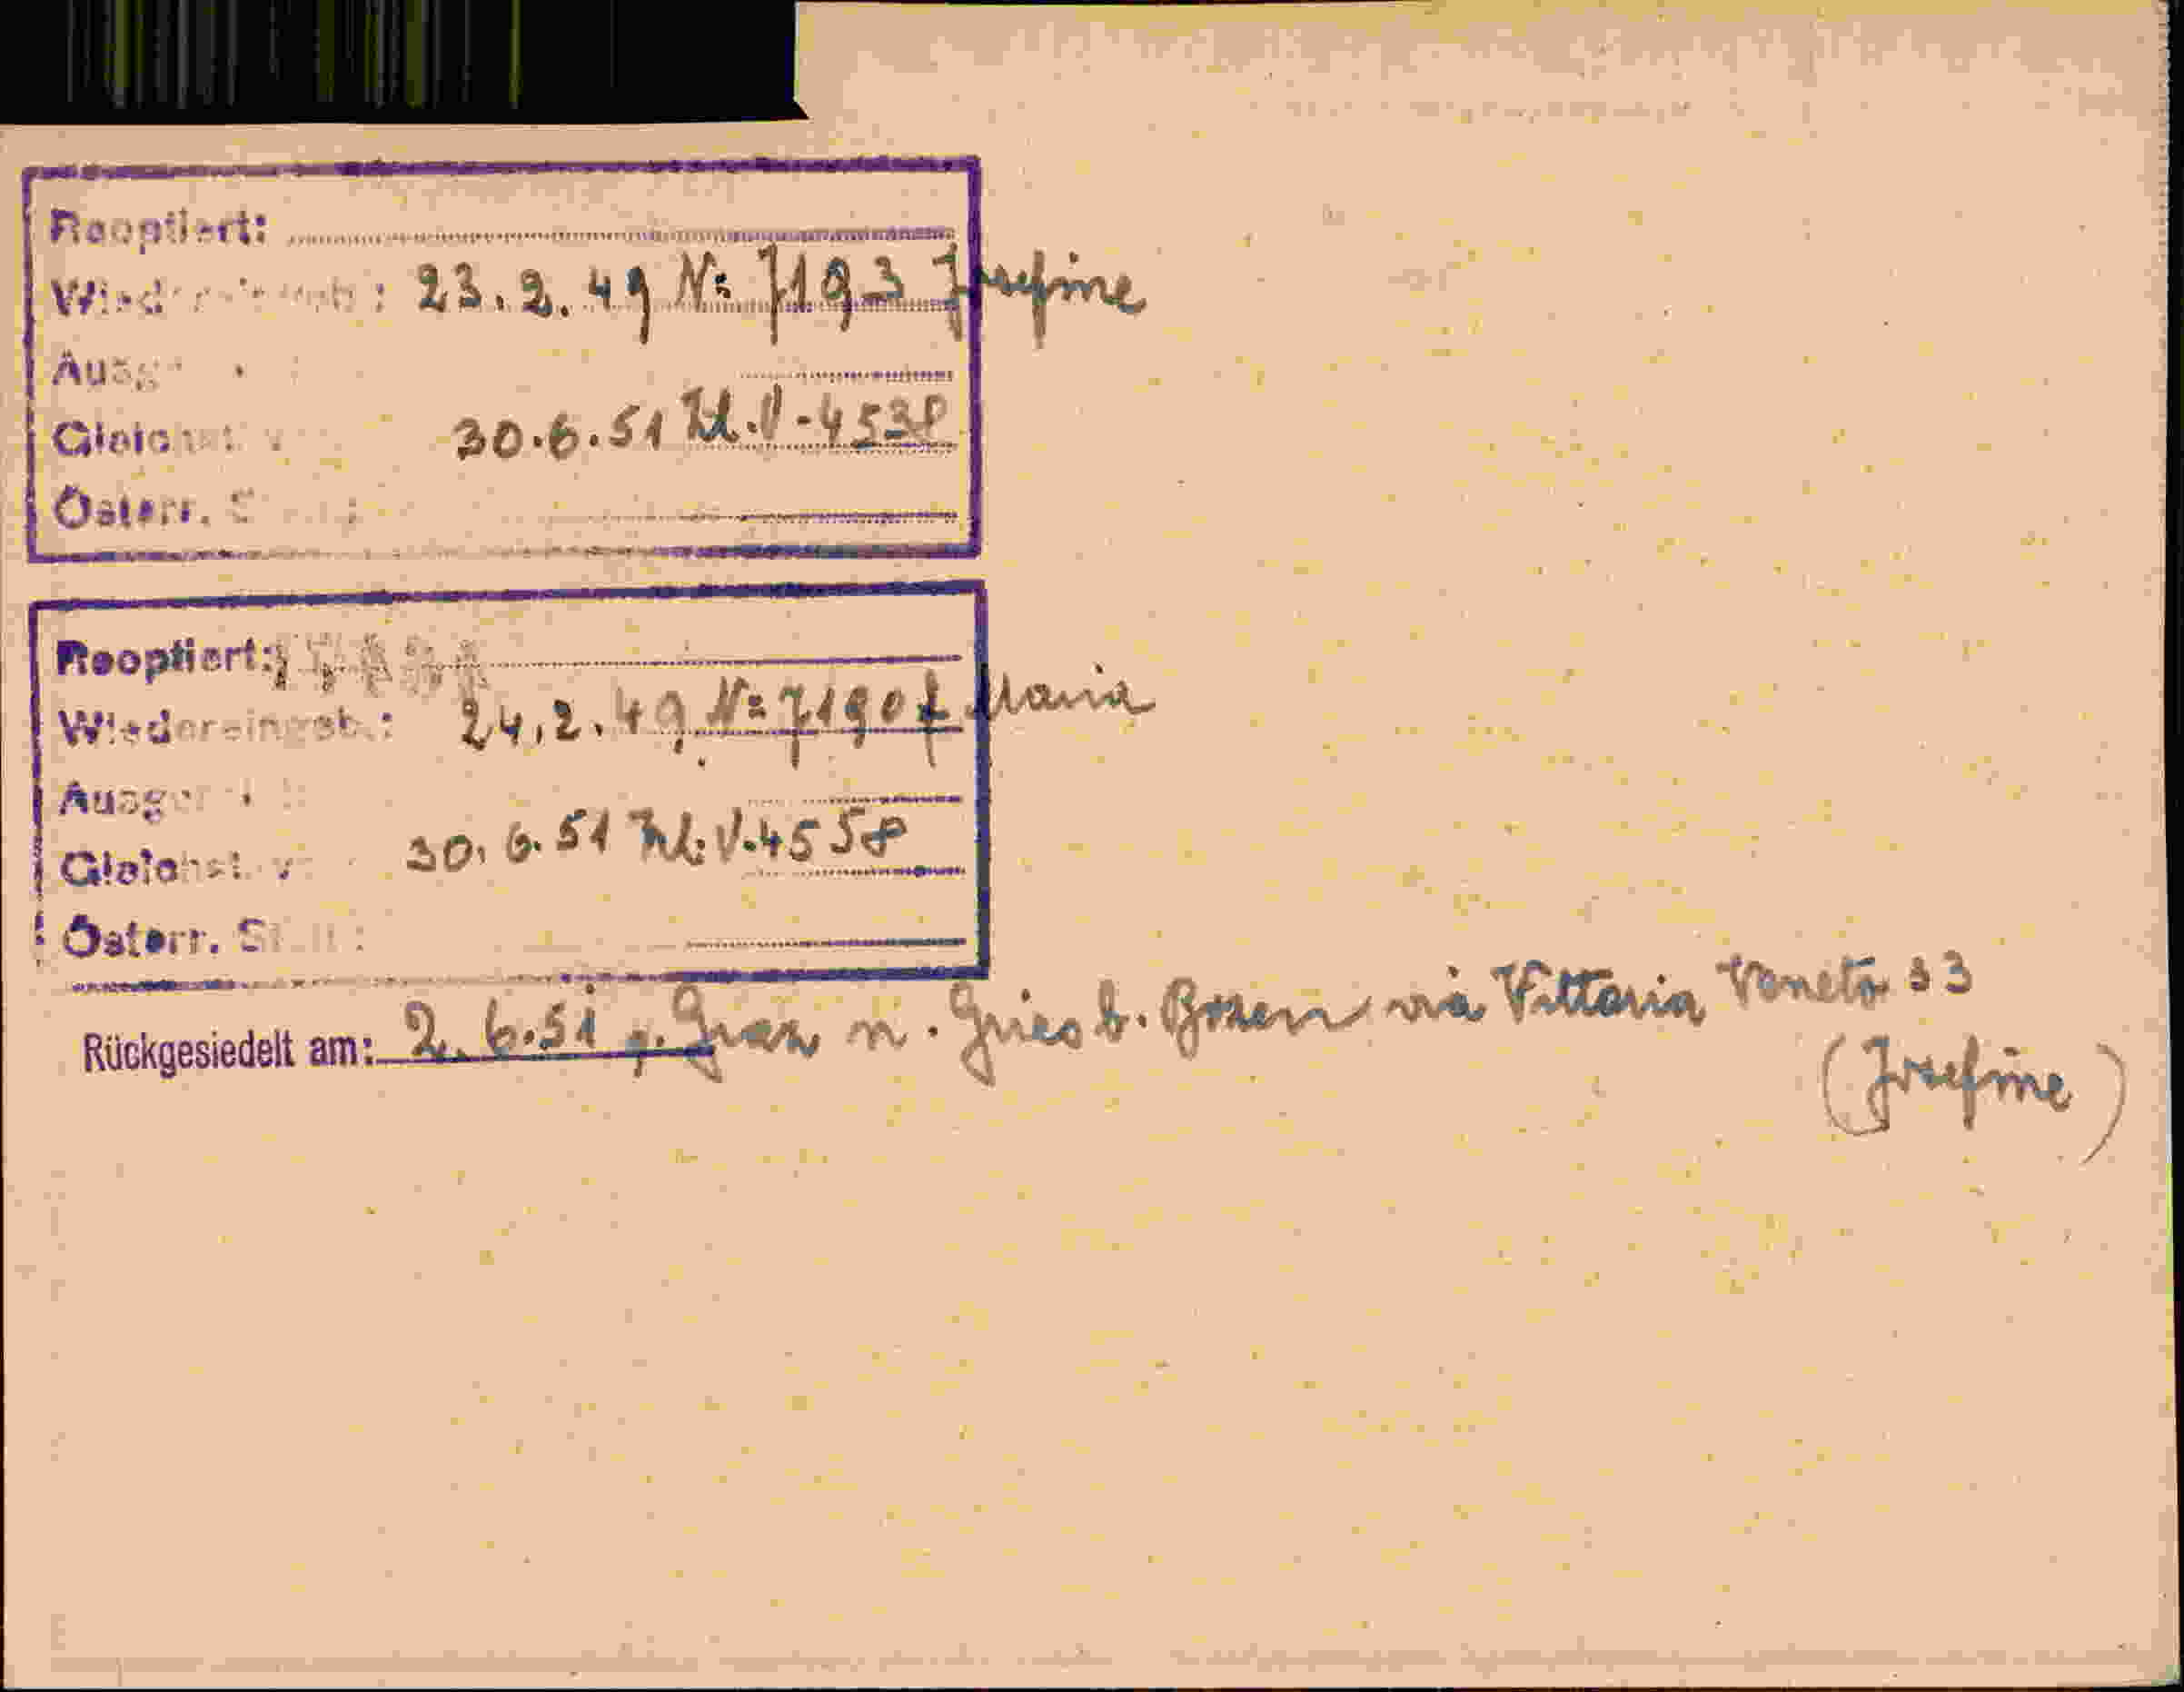 Reoptiert:
Wiedereingeb.: 23.2.49 № 7193 Josefine
Ausge
Gleichst. v 30.6.51 Zl. V-4538
Österr. S
Reoptiert:
Wiedereingeb.: 24.2.49 № 7190 f Maria
Ausger
Gleichst. v 30.6.51 Zl. V.4558
Österr. St
Rückgesiedelt am: 2.6.51 v. Graz n. Gries b. Bozen via Vittoria Veneto 33
(Josefine)